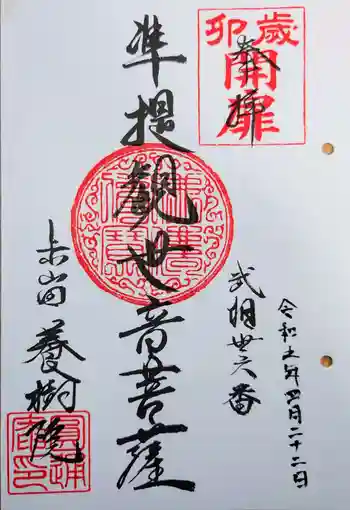 卯歳
開扉
奉拝
準提観世音菩薩
令和五年四月二十二日
武相卅六番
養樹院